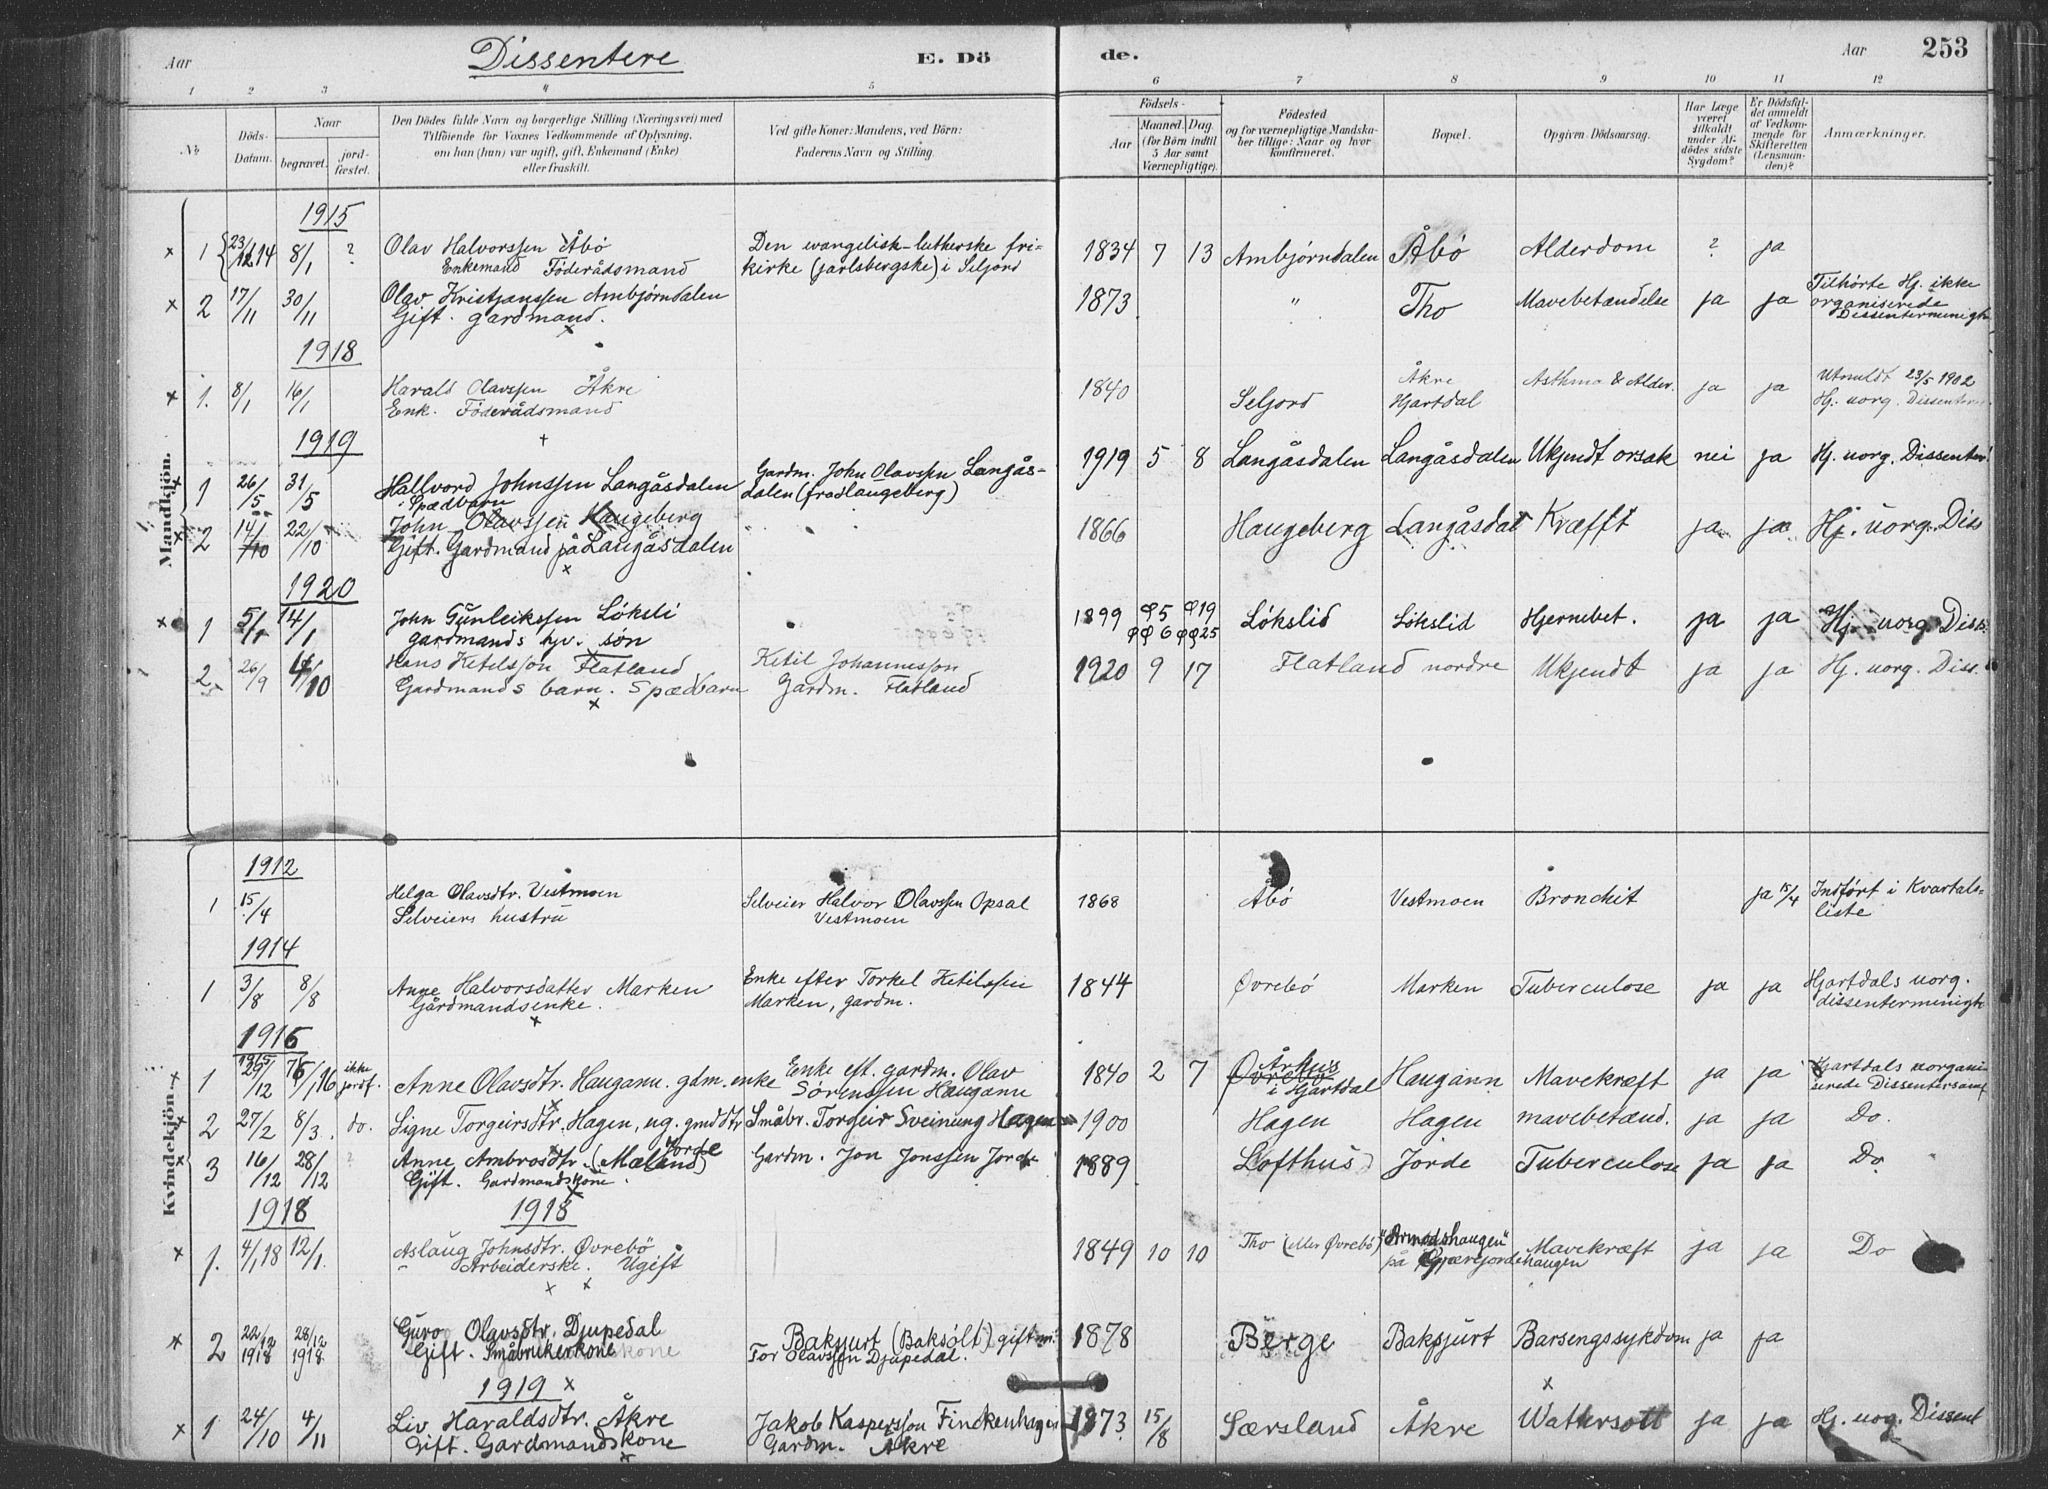 Aar Dissentere E. Dö de. Aar 253
1 2 3 4 5 6 7 8 9 10 11 12
No. Döds-Datum. Naar begravet. jord-fæstet. Den Dödes fulde Navn og borgerlige Stilling (Næringsvei) med Tilföiende for Voxnes Vedkommende af Oplysning, om han (hun) var ugift, gift, Enkemand (Enke) eller fraskilt. Ved gifte Koner: Mandens, ved Börn: Faderens Navn og Stilling. Födsels- Aar Maaned. Dag. (for Börn indtil 5 Aar samt Værnepligtige). Födested og for værnepligtige Mandskaber tillige: Naar og hvor konfirmeret. Bopæl. Opgiven Dödsaarsag. Har Læge været tilkaldt under Afdödes sidste Sygdom? Er Dödsfaldet anmeldt af Vedkommende for Skifteretten (Lensmanden)? Anmærkninger.
Mandkjön.
1915
x 1 23/12 14 8/1 ? Olav Halvorssen Åbö Den evangelisk-lutherske fri- 1834 7 13 Ambjørndalen Åbö Alderdom ? ja
Enkemand Föderådsmand kirke (jarlsbergske) i Seljord
x 2 17/11 30/11 Olav Kristjanssen Ambjørndalen 1873 " Tho Mavebetændelse ja ja Tilhørte Hj. ikke
Gift. gardmand. organiserede
Dissentermenigh.
1918
x 1. 8/1 16/1 Harald Olavssen Åkre 1840 Seljord Åkre Asthma & Alder. ja ja Utmeldt 23/5 1902
Enk. Föderådsmand Hjartdal Hj. uorg. Dissenterm.
1919
x 1 26/5 31/5 Hallvord Johnssen Langåsdalen Gardm. John Olavssen Langås- 1919 5 8 Langåsdalen Langåsdalen Ukjendt orsak nei ja Hj. uorg. Dissenter
Spædbarn dalen (fra Haugeberg)
x 2 14/10 22/10 John Olavssen Haugeberg 1866 Haugeberg Langåsdal Kræfft ja ja Hj. uorg. Diss
Gift. Gardmand på Langåsdalen
1920
x 1 5/1 14/1 John Gunleikssen Löksli 1899 5 19 Lökslid Lökslid Hjernebet. ja ja Hj. uorg. Diss.
gardmands hjv. søn 6 25
2 26/9 4/10 Hans Ketilsson Flatland Ketil Johannesson 1920 9 17 Flatland nordre Ukjendt ja ja Hj. uorg. Diss.
Gardmands barn. Spædbarn Gardm. Flatland
Kvindekjön.
1912
1 15/4 Helga Olavsdtr. Vestmoen Selveier Halvor Olavssen Opsal 1868 Åbö Vestmoen Bronchit ja 15/4 Indført i Kvartals-
Selveiers hustru Vestmoen liste
1914
1 3/8 8/8 Anne Halvorsdatter Marken Enke efter Torkel Ketilssen 1844 Øvrebö Marken Tuberculose ja ja Hjartdals uorg.
Gårdmandsenke. Marken, gardm. dissentermenigh
1916
x 1 1915 29/12 16 ikke jordf. Anne Olavsdtr. Haugann. gdm. enke Enke eft. gardm. Olav 1840 2 7 Århus Haugann Mavekræft ja ja Hjartdals uorgani
Sørenssen Haugann Øvrebö i Hjartdal serede Dissentersamf
x 2 27/2 8/3. do. Signe Torgeirsdtr. Hagen, ug. gmdstr Småbr. Torgeir Sveinung Hagen 1900 Hagen Hagen mavebetænd. ja ja Do.
x 3 16/12 28/12 ? Anne Ambrosdtr. (Mæland) Jorde Gardm. Jon Jonssen Jorde 1889 Lofthus Jorde Tuberculose ja ja Do
Gift. Gardmandskone.
1918 1918
x 1. 4/1 18 12/1. Aslaug Johnsdtr. Øvrebö 1849 10 10 Tho (eller Øvrebö) "Armodshaugen" Mavekræft ja ja Do
Arbeiderske. Ugift på Gjærejordehaugen
x 2 22/12 1918 28/12 1918 Guro Olavsdtr. Djupedal Baksjurt (Baksølt) gift m. 1878 Berge Baksjurt Barsengssykdom ja ja
Gift. Småbrukerkone Tor Olavsson Djupedal.
1919
x 1 24/10 4/11 Liv Haraldsdtr. Åkre Jakob Kaspersson Finckenhagen 1873 15/8 Særsland Åkre Wattersott ja ja Hj. uog. Dissent
Gift. Gardmandskone Gardm. Åkre